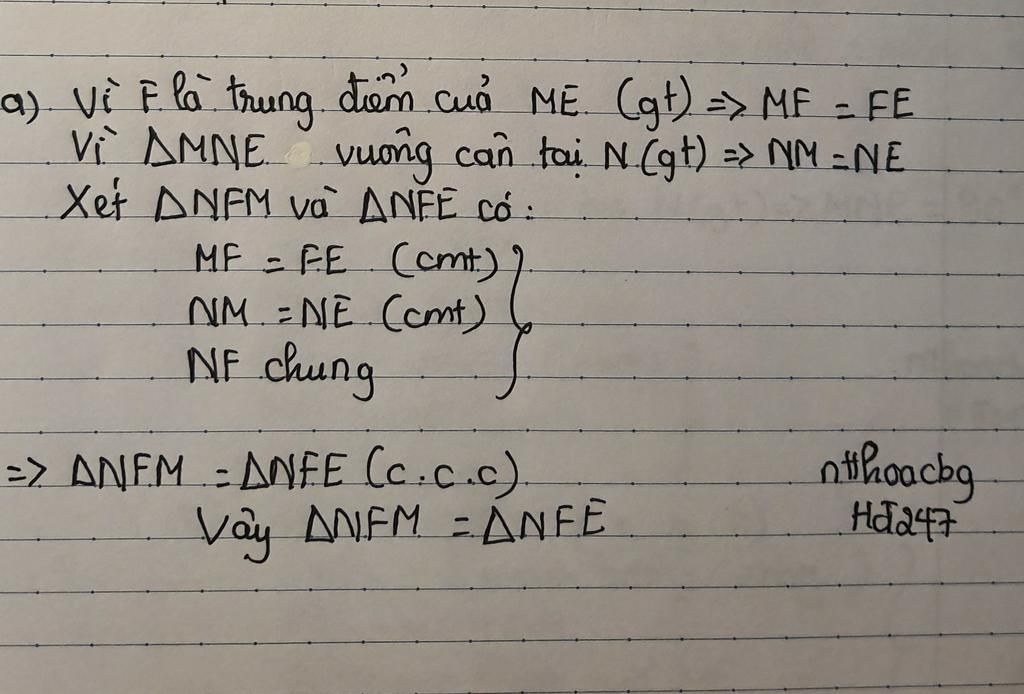 a) Vì F là trung điểm của ME (gt) => MF = FE
Vì ΔMNE vuông cân tại N (gt) => NM = NE
Xét ΔNFM và ΔNFE có:
MF = FE (cmt)
NM = NE (cmt)
NF chung
=> ΔNFM = ΔNFE (c.c.c)
Vậy ΔNFM = ΔNFE
ntthoacbg
Hđ247